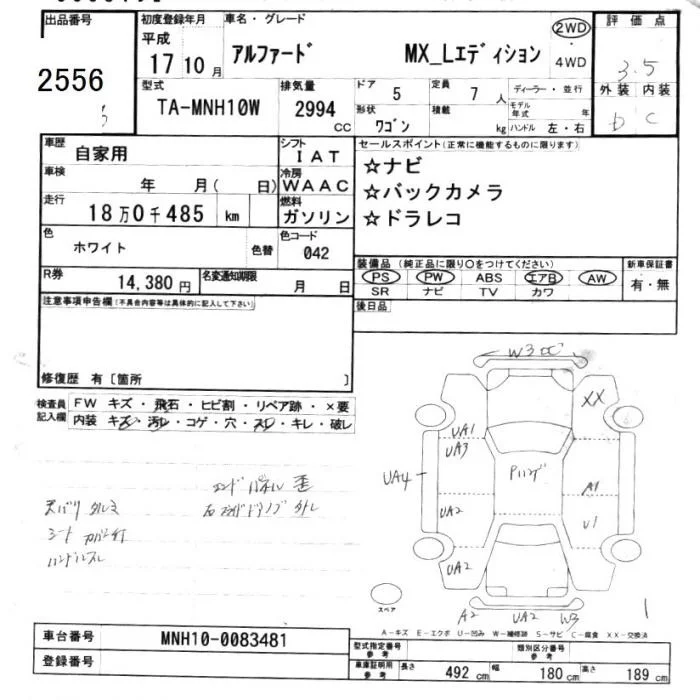 出品番号 初度登録年月 車名・グレード 評価点
2556 平成 17 10月 アルファード MX_Lエディション 2WD ・ 4WD 3.5
外装 内装
D C
型式 排気量 ドア 定員 ディーラー・並行
TA-MNH10W 2994 cc 5 7人 モデル年式 年
形状 積載
ワゴン kg ハンドル 左・右
車歴 自家用 シフト IAT セールスポイント(正常に機能するものに限ります)
車検 年 月( 日) 冷房 WAAC ☆ナビ
走行 18万0千485 km 燃料 ガソリン ☆バックカメラ
☆ドラレコ
色 ホワイト 色替 色コード 042
装備品 (純正品に限り○をつけてください) 新車保証書
R券 14,380円 名変通知期限 月 日 PS PW ABS エアB AW 有・無
SR ナビ TV カワ
注意事項申告欄(不具合内容等は具体的に記入して下さい) 後日品
修復歴 有〔箇所 〕
検査員記入欄 FW キズ・飛石・ヒビ割・リペア跡・×要
内装 キズ・汚レ・コゲ・穴・スレ・キレ・破レ
W3
XX
UA1
UA3
UA4
A1
UA2
U1
UA2
スペア
A2 UA2 W3
A-キズ E-エクボ U-凹み W-補修跡 S-サビ C-腐食 XX-交換済
車台番号 MNH10-0083481 型式指定番号 参考 類別区分番号 参考
登録番号 車庫証明用 参考 長さ 492 cm 幅 180 cm 高さ 189 cm